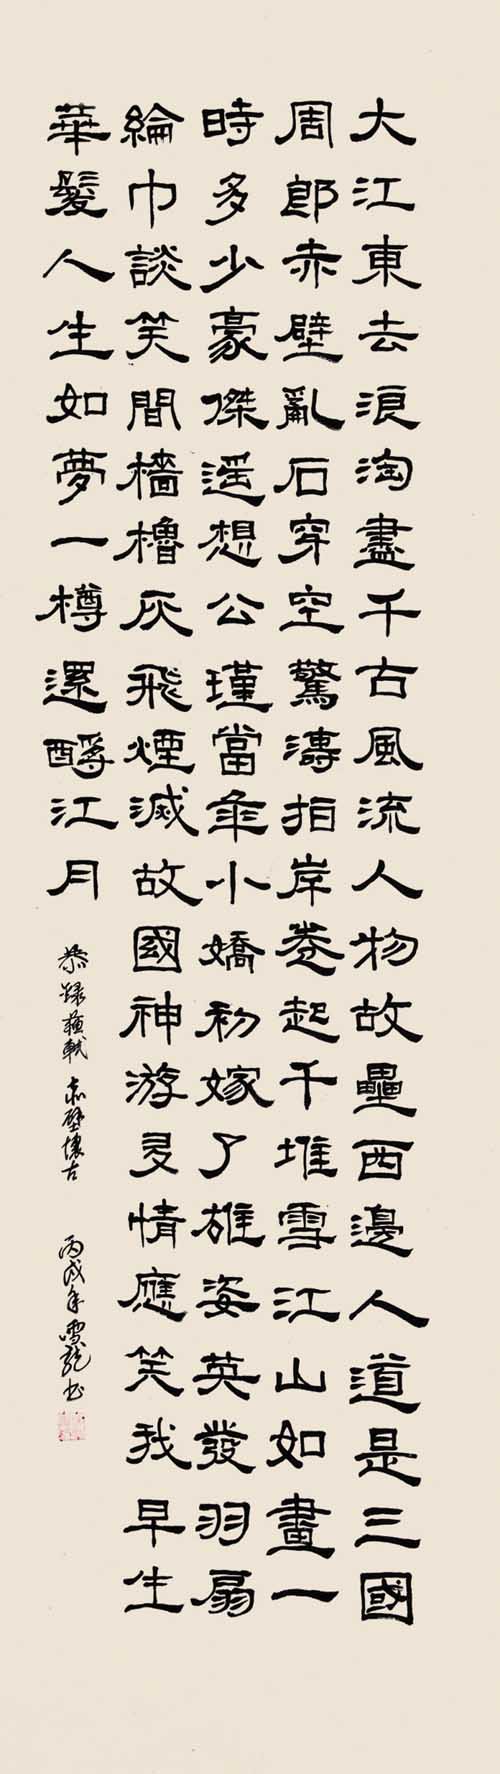 大江東去浪淘盡千古風流人物故壘西邊人道是三國
周郎赤壁亂石穿空驚濤拍岸卷起千堆雪江山如畫一
時多少豪傑遥想公瑾當年小嬌初嫁了雄姿英發羽扇
綸巾談笑間檣櫓灰飛煙滅故國神游多情應笑我早生
華髮人生如夢一樽還酹江月
恭録蘇軾赤壁懷古 丙戌年雪龍書